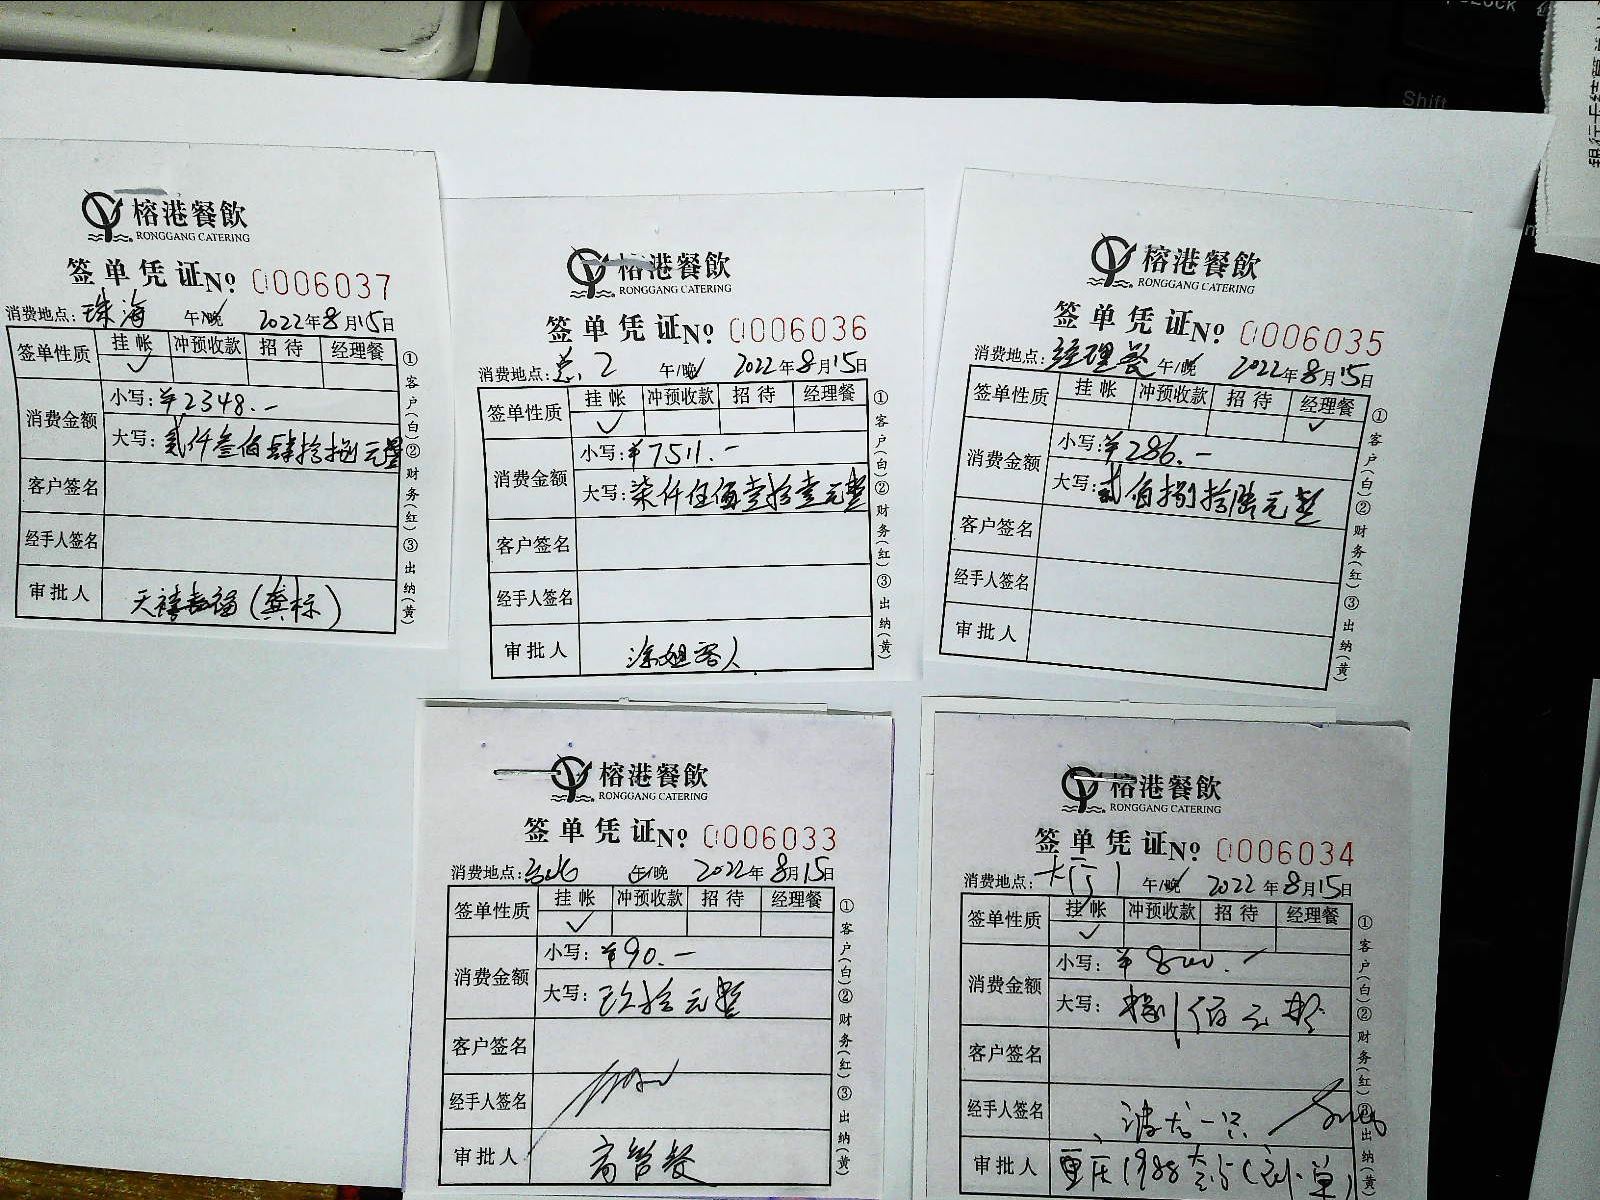 Shift
榕港餐飲
RONGGANG CATERING
签单凭证 No 0006037
消费地点: 珠海 午/晚 2022年8月15日
签单性质 挂帐 冲预收款 招待 经理餐
✓
消费金额 小写: ¥2348.-
大写: 贰仟叁佰肆拾捌元整
客户签名
经手人签名
审批人
①客户(白)②财务(红)③出纳(黄)
榕港餐飲
RONGGANG CATERING
签单凭证 No 0006036
消费地点: 2 午/晚 2022年8月15日
签单性质 挂帐 冲预收款 招待 经理餐
✓
消费金额 小写: ¥7511.-
大写: 柒仟伍佰壹拾壹元整
客户签名
经手人签名
审批人 涂姐客人
①客户(白)②财务(红)③出纳(黄)
榕港餐飲
RONGGANG CATERING
签单凭证 No 0006035
消费地点: 经理餐 午/晚 2022年8月15日
签单性质 挂帐 冲预收款 招待 经理餐
✓
消费金额 小写: ¥286.-
大写: 贰佰捌拾陆元整
客户签名
经手人签名
审批人
①客户(白)②财务(红)③出纳(黄)
榕港餐飲
RONGGANG CATERING
签单凭证 No 0006033
消费地点: 台北 午/晚 2022年8月15日
签单性质 挂帐 冲预收款 招待 经理餐
✓
消费金额 小写: ¥90.-
大写: 玖拾元整
客户签名
经手人签名
审批人 高管餐
①客户(白)②财务(红)③出纳(黄)
榕港餐飲
RONGGANG CATERING
签单凭证 No 0006034
消费地点: 大厅1 午/晚 2022年8月15日
签单性质 挂帐 冲预收款 招待 经理餐
✓
消费金额 小写: ¥800.-
大写: 捌佰元整
客户签名
经手人签名 波龙一只
审批人 重庆1988
①客户(白)②财务(红)③出纳(黄)